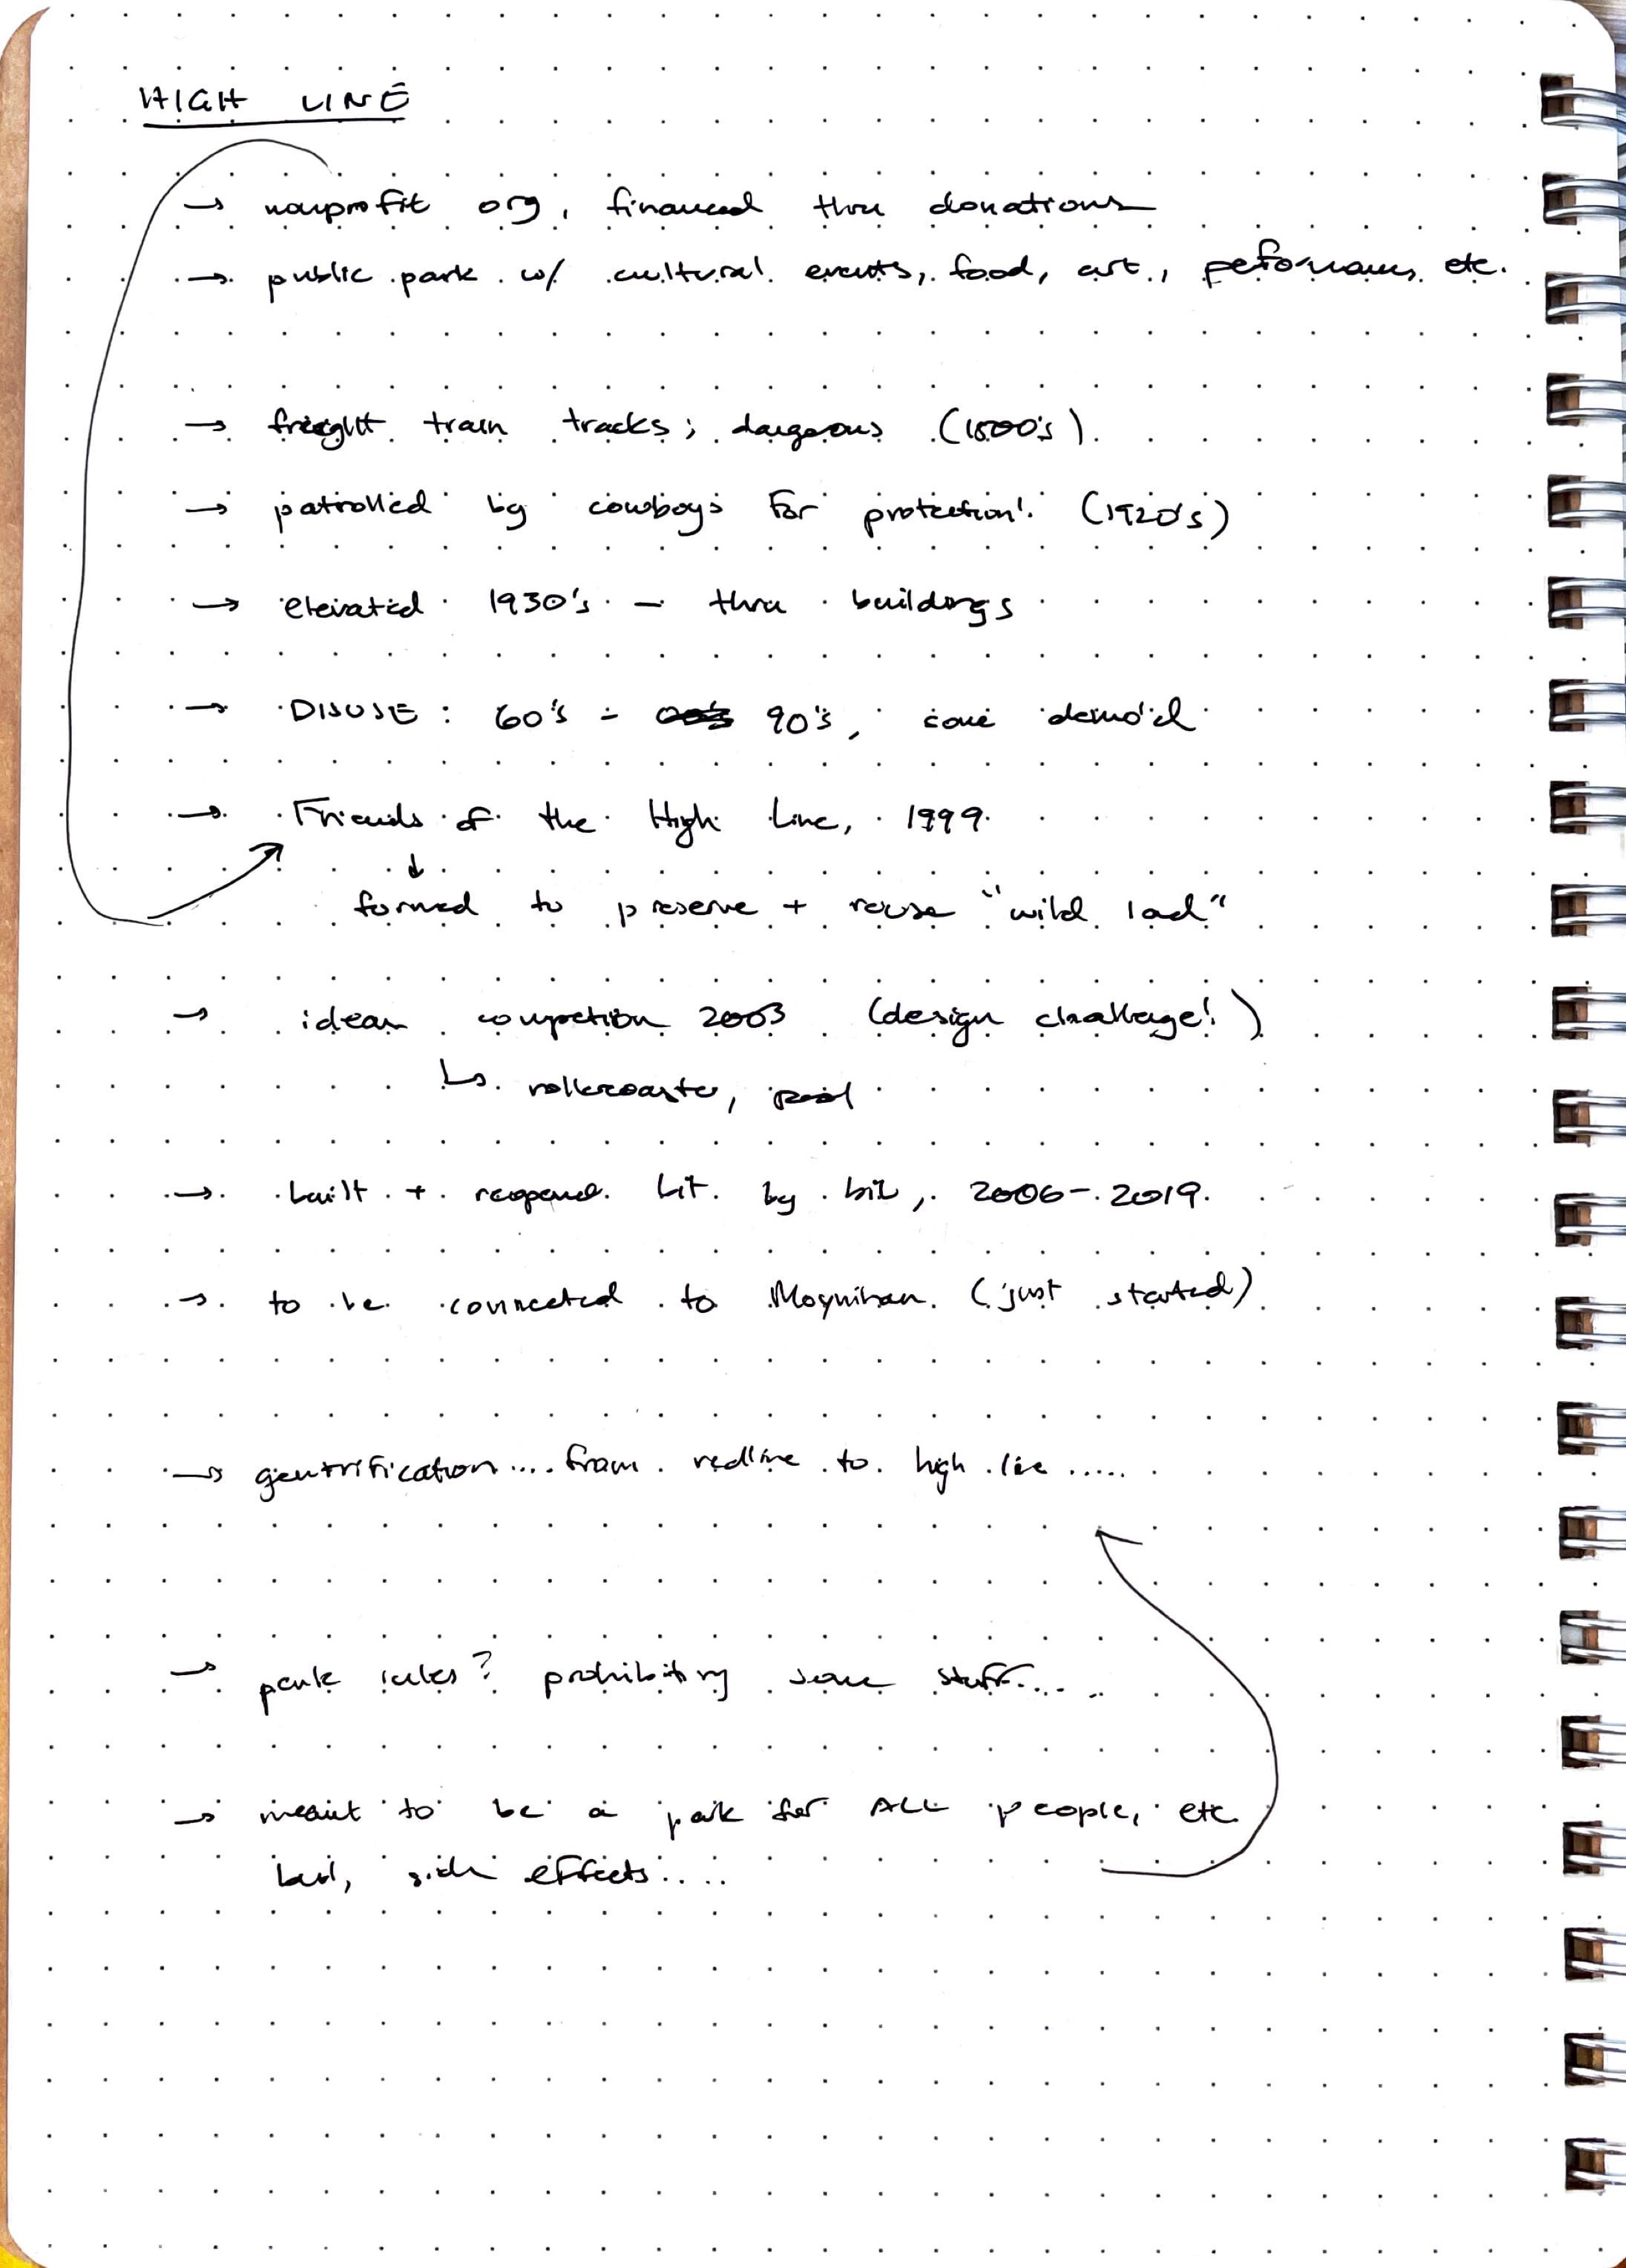 HIGH LINE
→ nonprofit org, financed thru donations
→ public park w/ cultural events, food, art, peformances, etc.
→ freight train tracks; dangerous (1800's)
→ patrolled by cowboys for protection! (1920's)
→ elevated 1930's - thru buildings
→ DISUSE: 60's - 90's, some demo'd
→ Friends of the High Line, 1999
↓
formed to preserve + reuse "wild land"
→ ideas competion 2003 (design challenge!)
↳ rollercoaster, pool
→ built + reopened bit by bit, 2006-2019.
→ to be connected to Moynihan (just started)
→ gentrification.... from redline to high line .....
→ park rules? prohibiting some stuff.....
→ meant to be a park for ALL people, etc
but, side effects.....